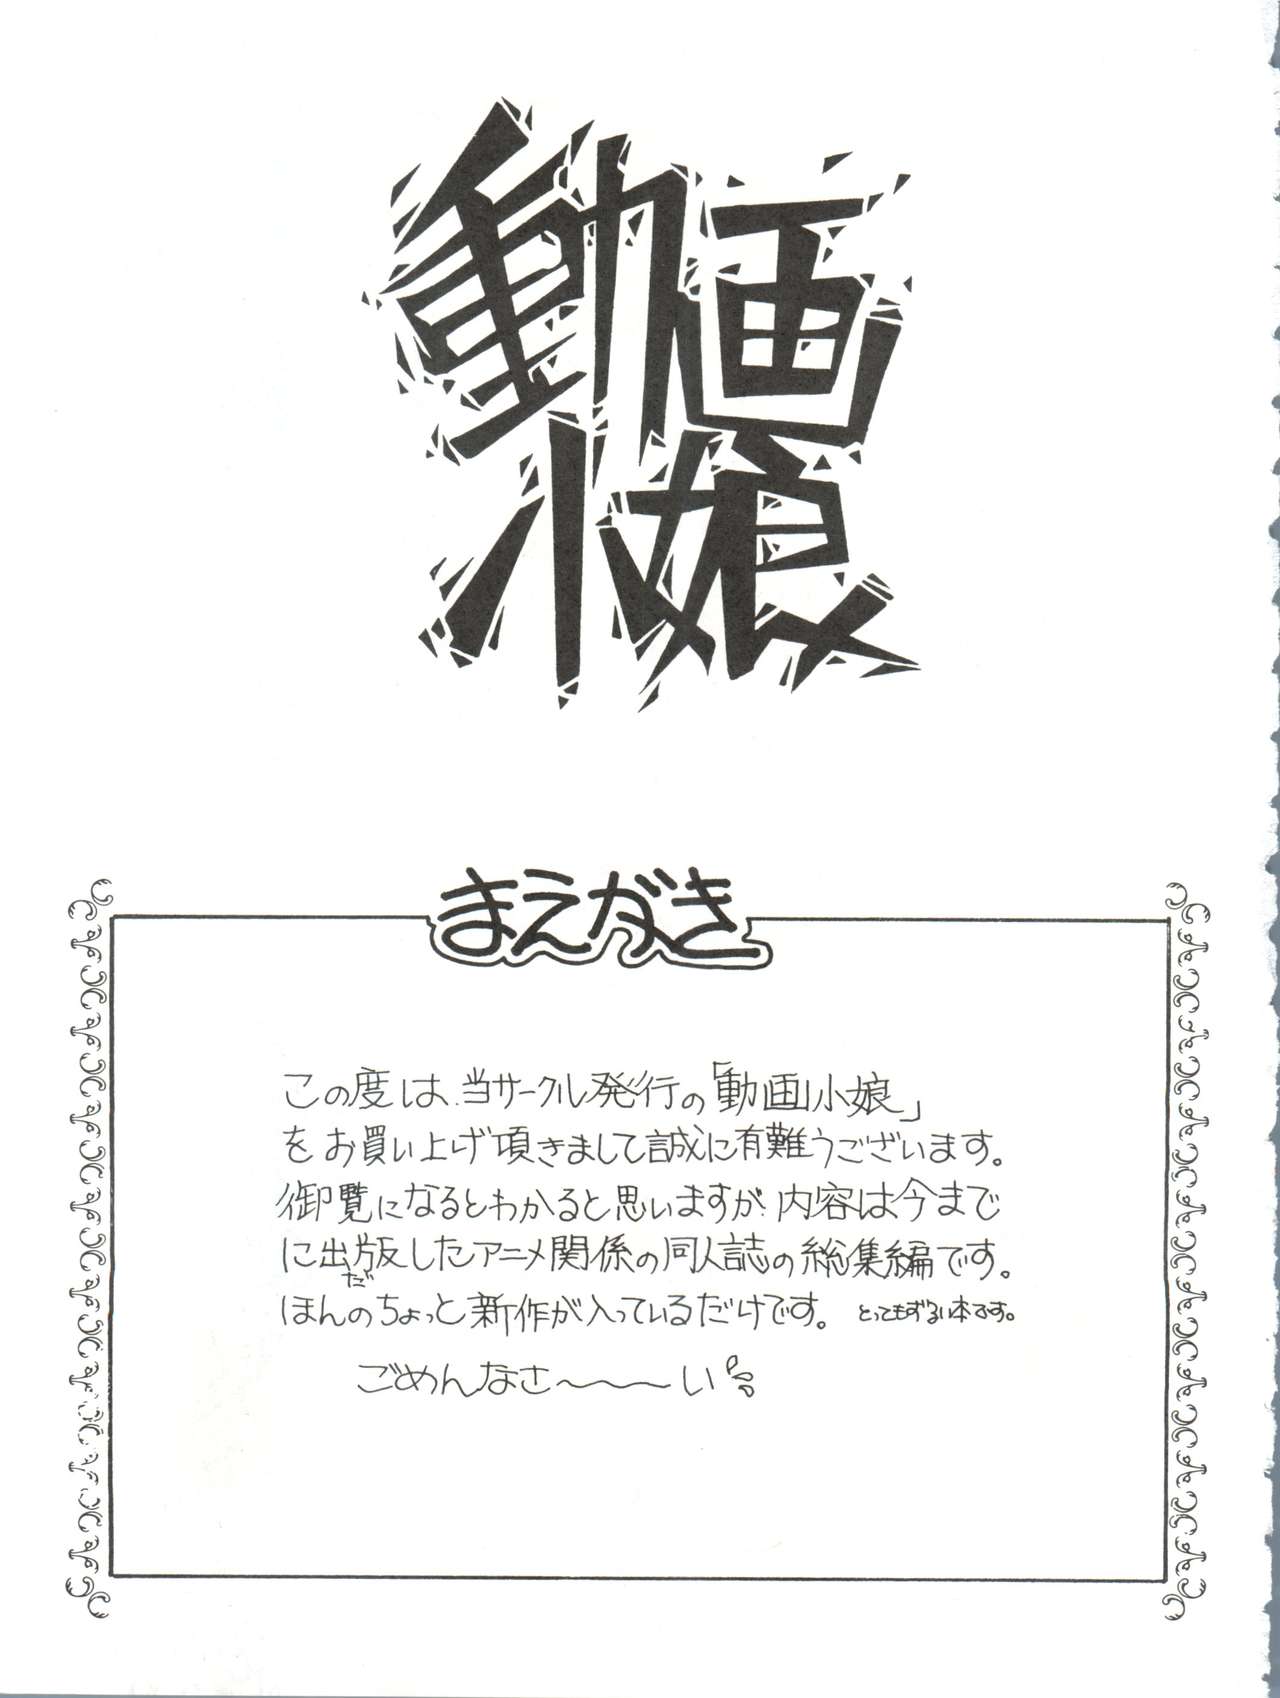 動画
小娘
まえがき
この度は、当サークル発行の「動画小娘」
をお買い上げ頂きまして誠に有難うございます。
御覧になるとわかると思いますが、内容は今まで
に出版したアニメ関係の同人誌の総集編です。
だ
ほんのちょっと新作が入っているだけです。 とってもずるい本です。
ごめんなさ〜〜〜い